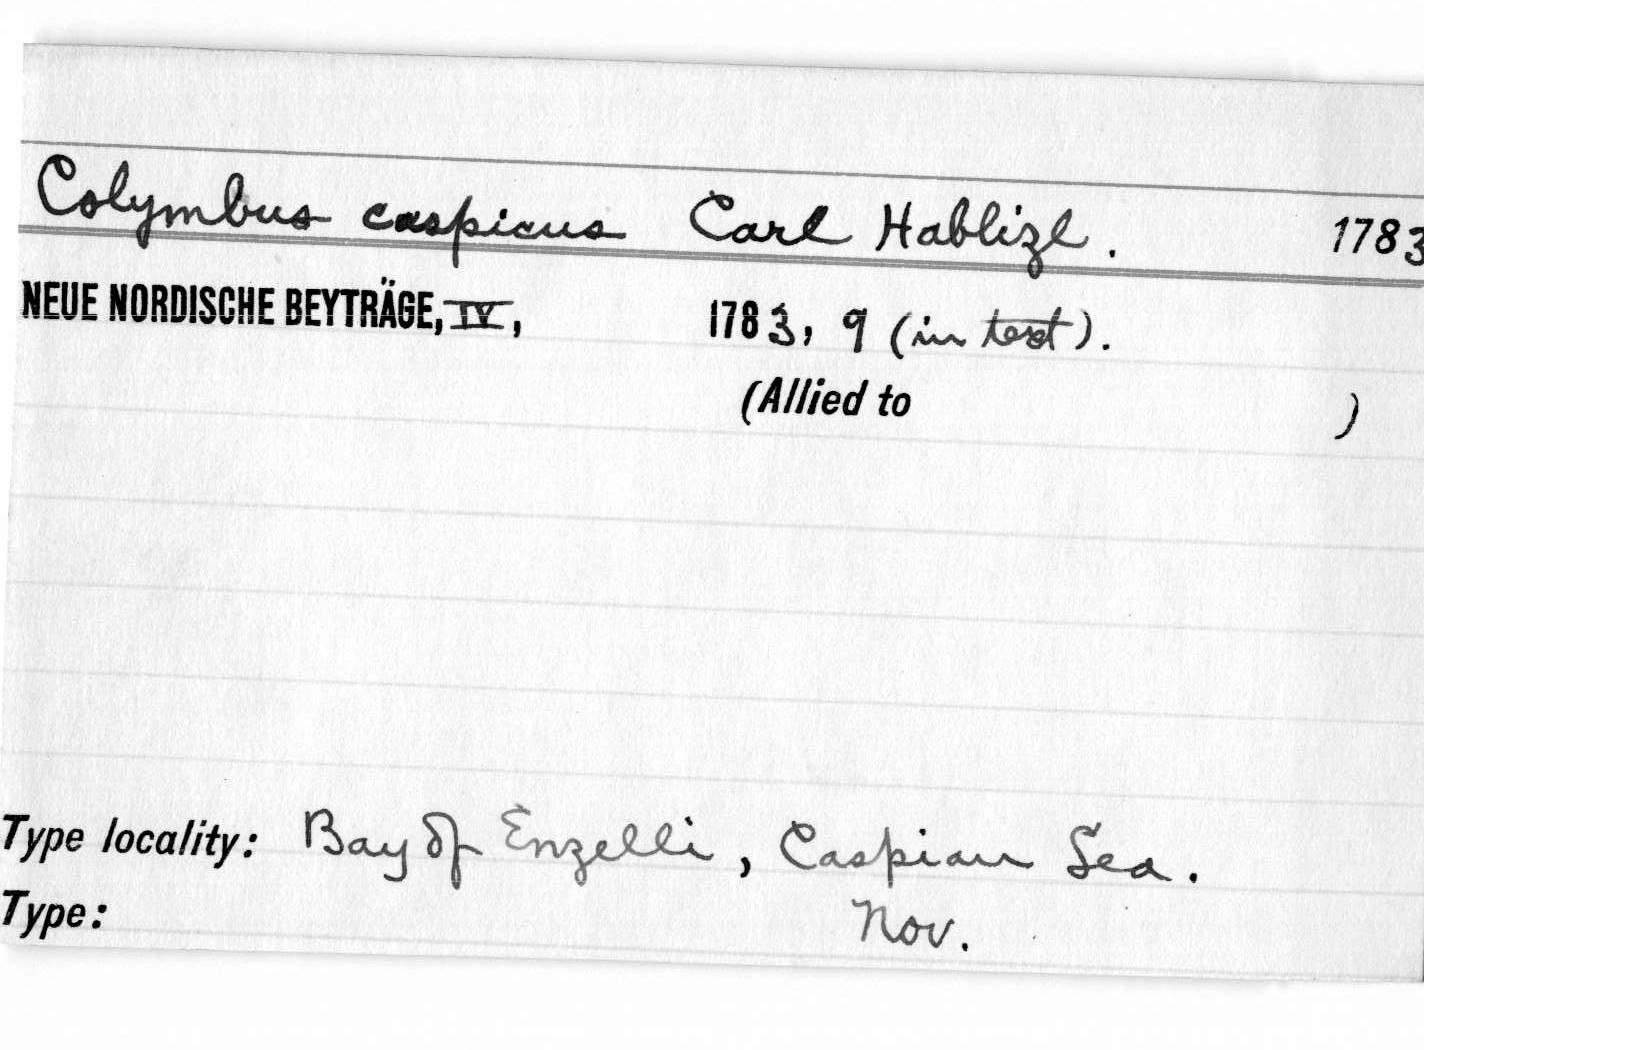 Colymbus caspicus Carl Hablizl. 1783
NEUE NORDISCHE BEYTRÄGE, IV, 1783, 9 (in text).
(Allied to )
Type locality: Bay of Enzelli, Caspian Sea.
Type: Nov.